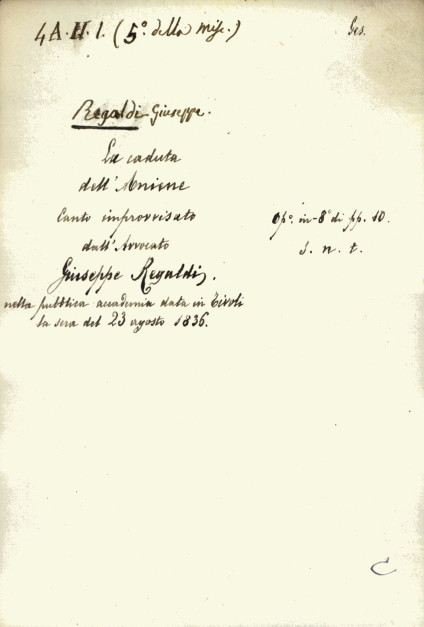 4 A. H. 1. (5º. della Misc.)
Ges.
Regaldi Giuseppe.
La caduta
dell' Aniene
Canto improvvisato
dall' Avvocato
Giuseppe Regaldi,
nella pubblica accademia data in Tivoli
la sera del 23 agosto 1836.
opº. in-8º di pp. 10.
s. n. t.
C